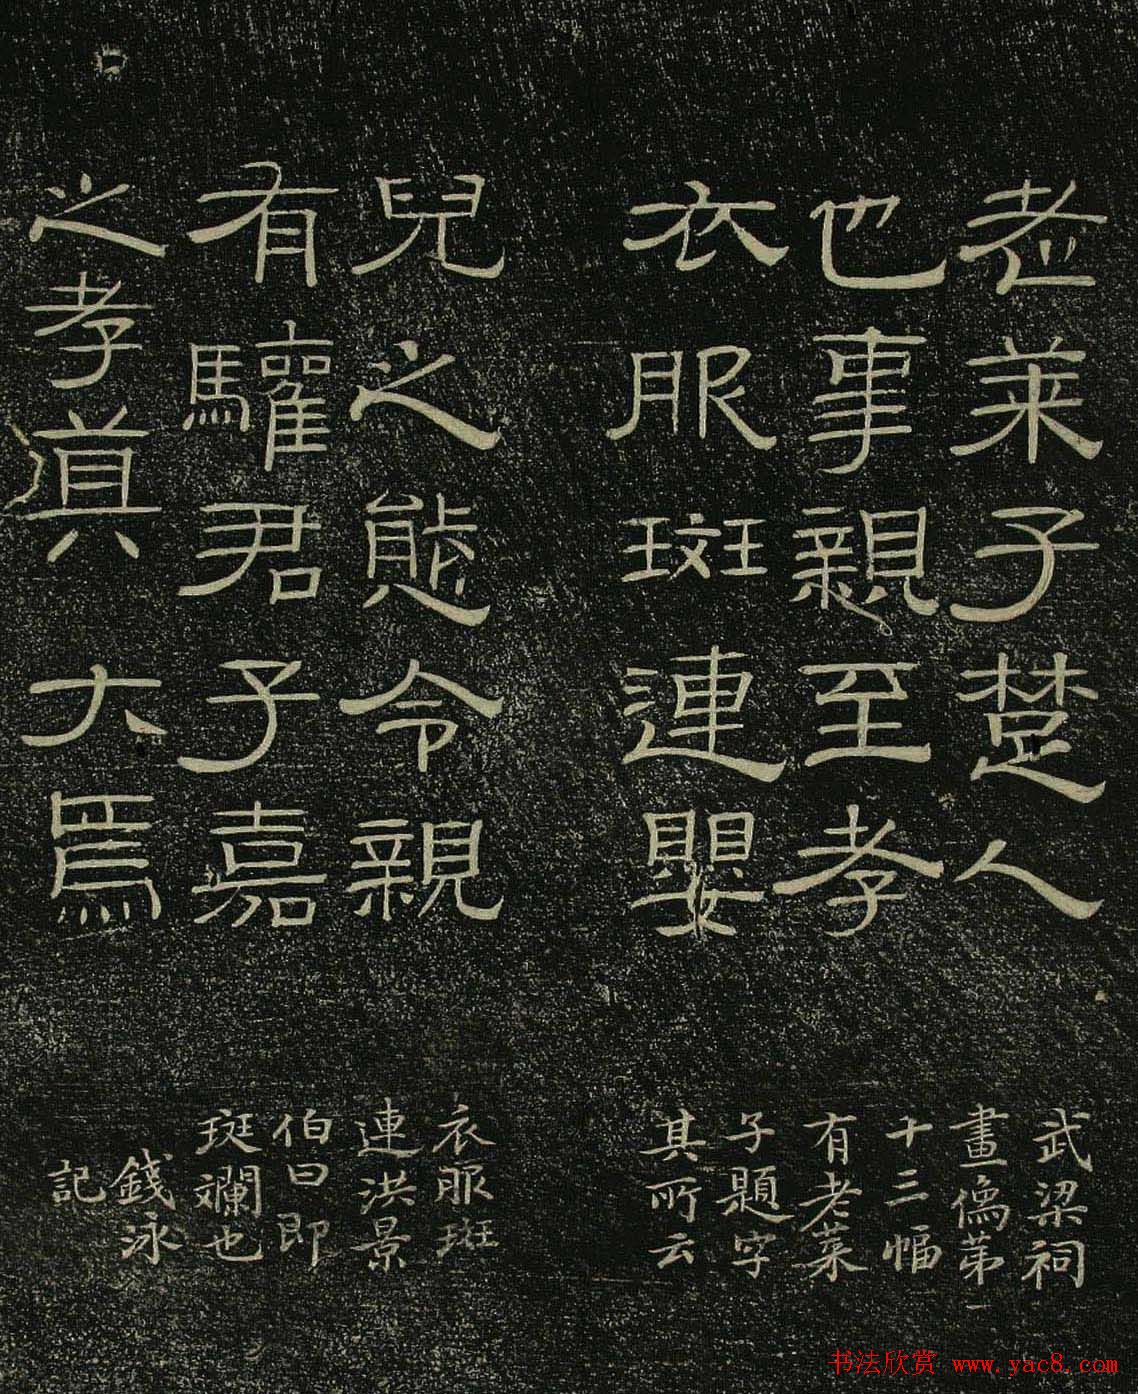 老莱子楚人
也事親至孝
衣服斑連嬰
兒之態令親
有驩君子嘉
之孝道大焉
武梁祠
畫像第
十三幅
有老莱
子題字
其所云
衣服斑
連洪景
伯曰即
斑斕也
錢泳
記
书法欣赏 www.yac8.com